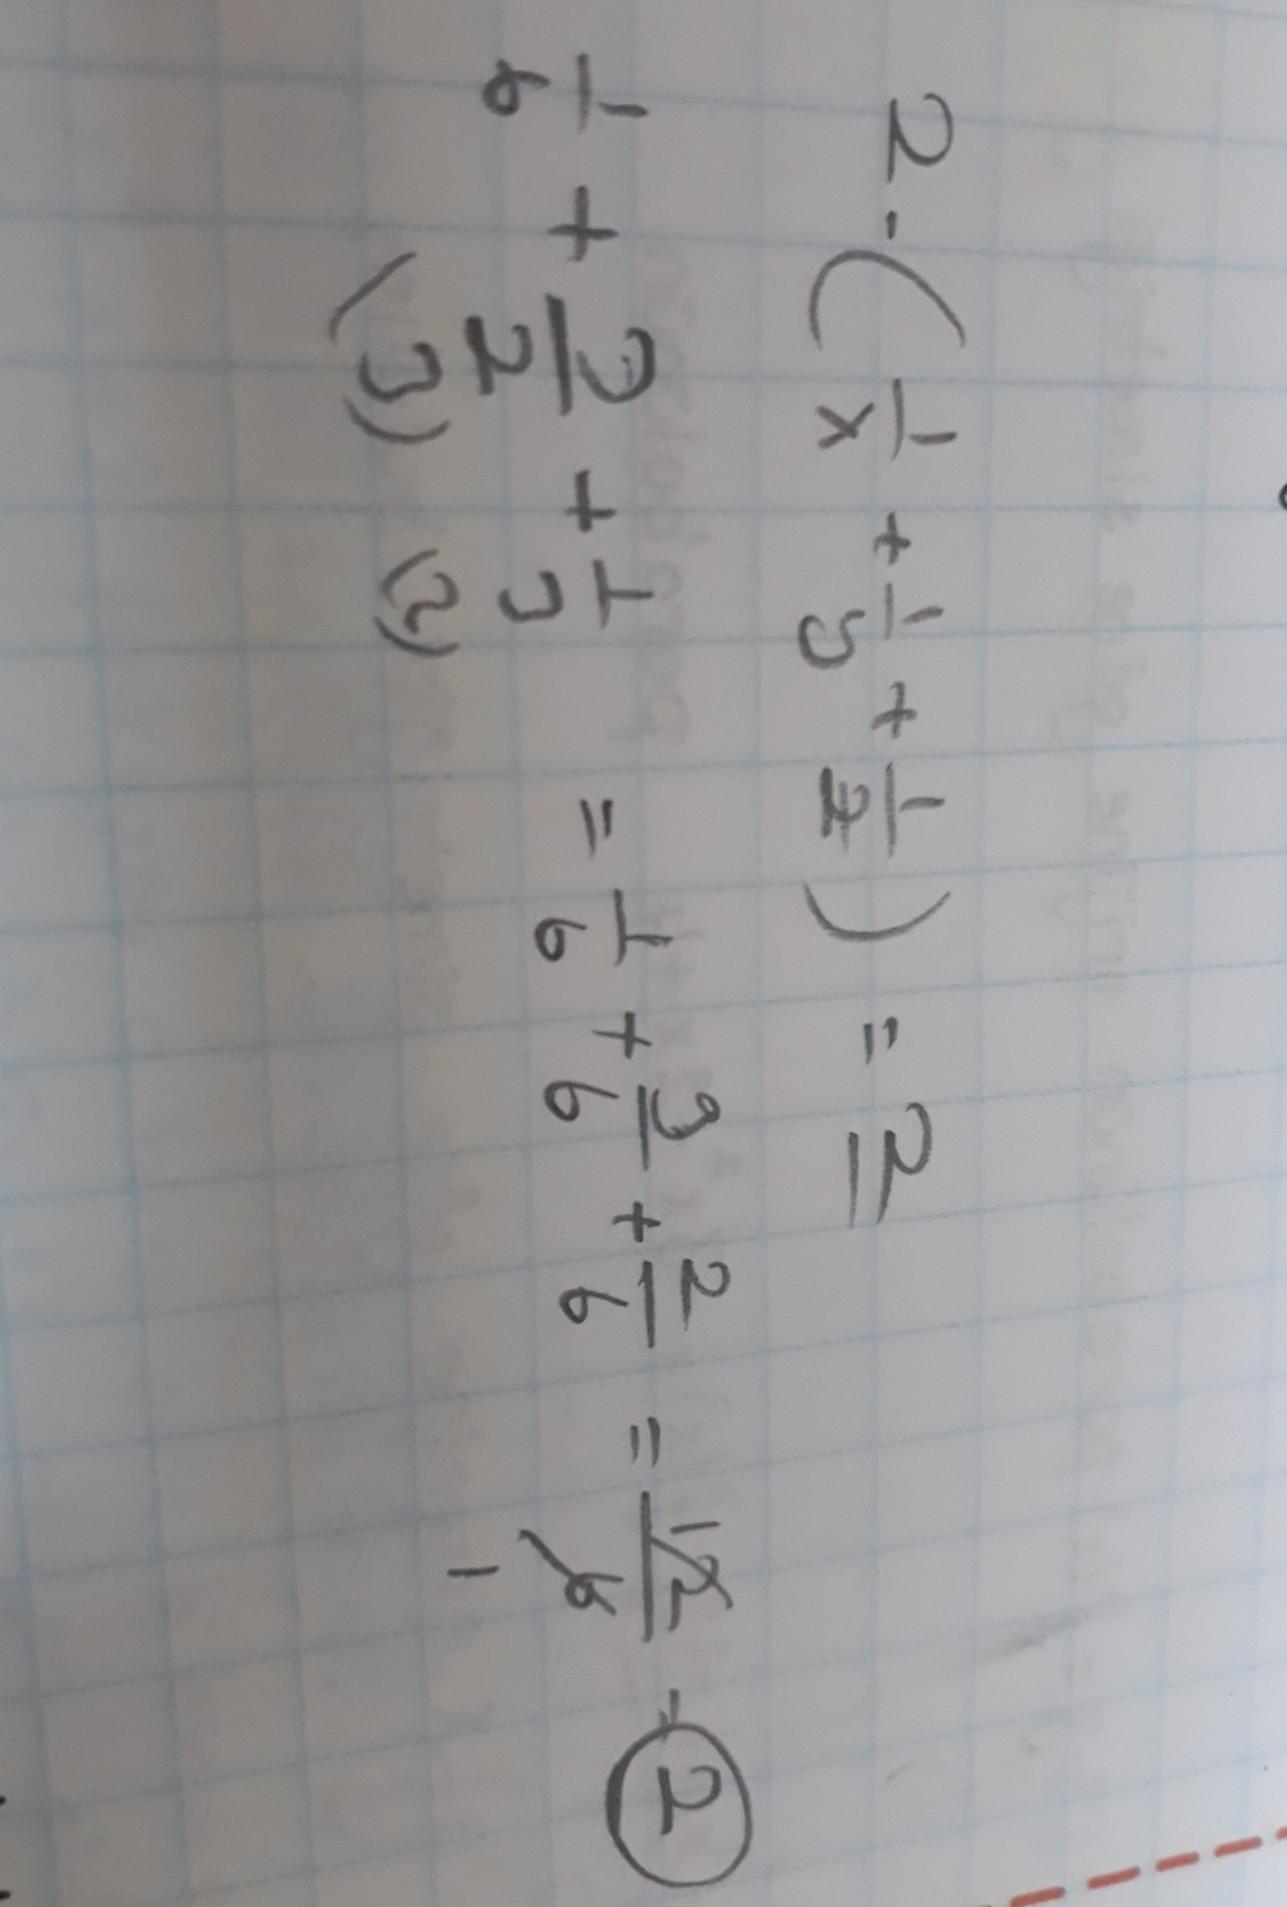 2·(1/x + 1/y + 1/z) = 2
1/6 + 3/2 + 1/3 = 1/6 + 9/6 + 2/6 = 12/6 = 2
(3) (2) 1